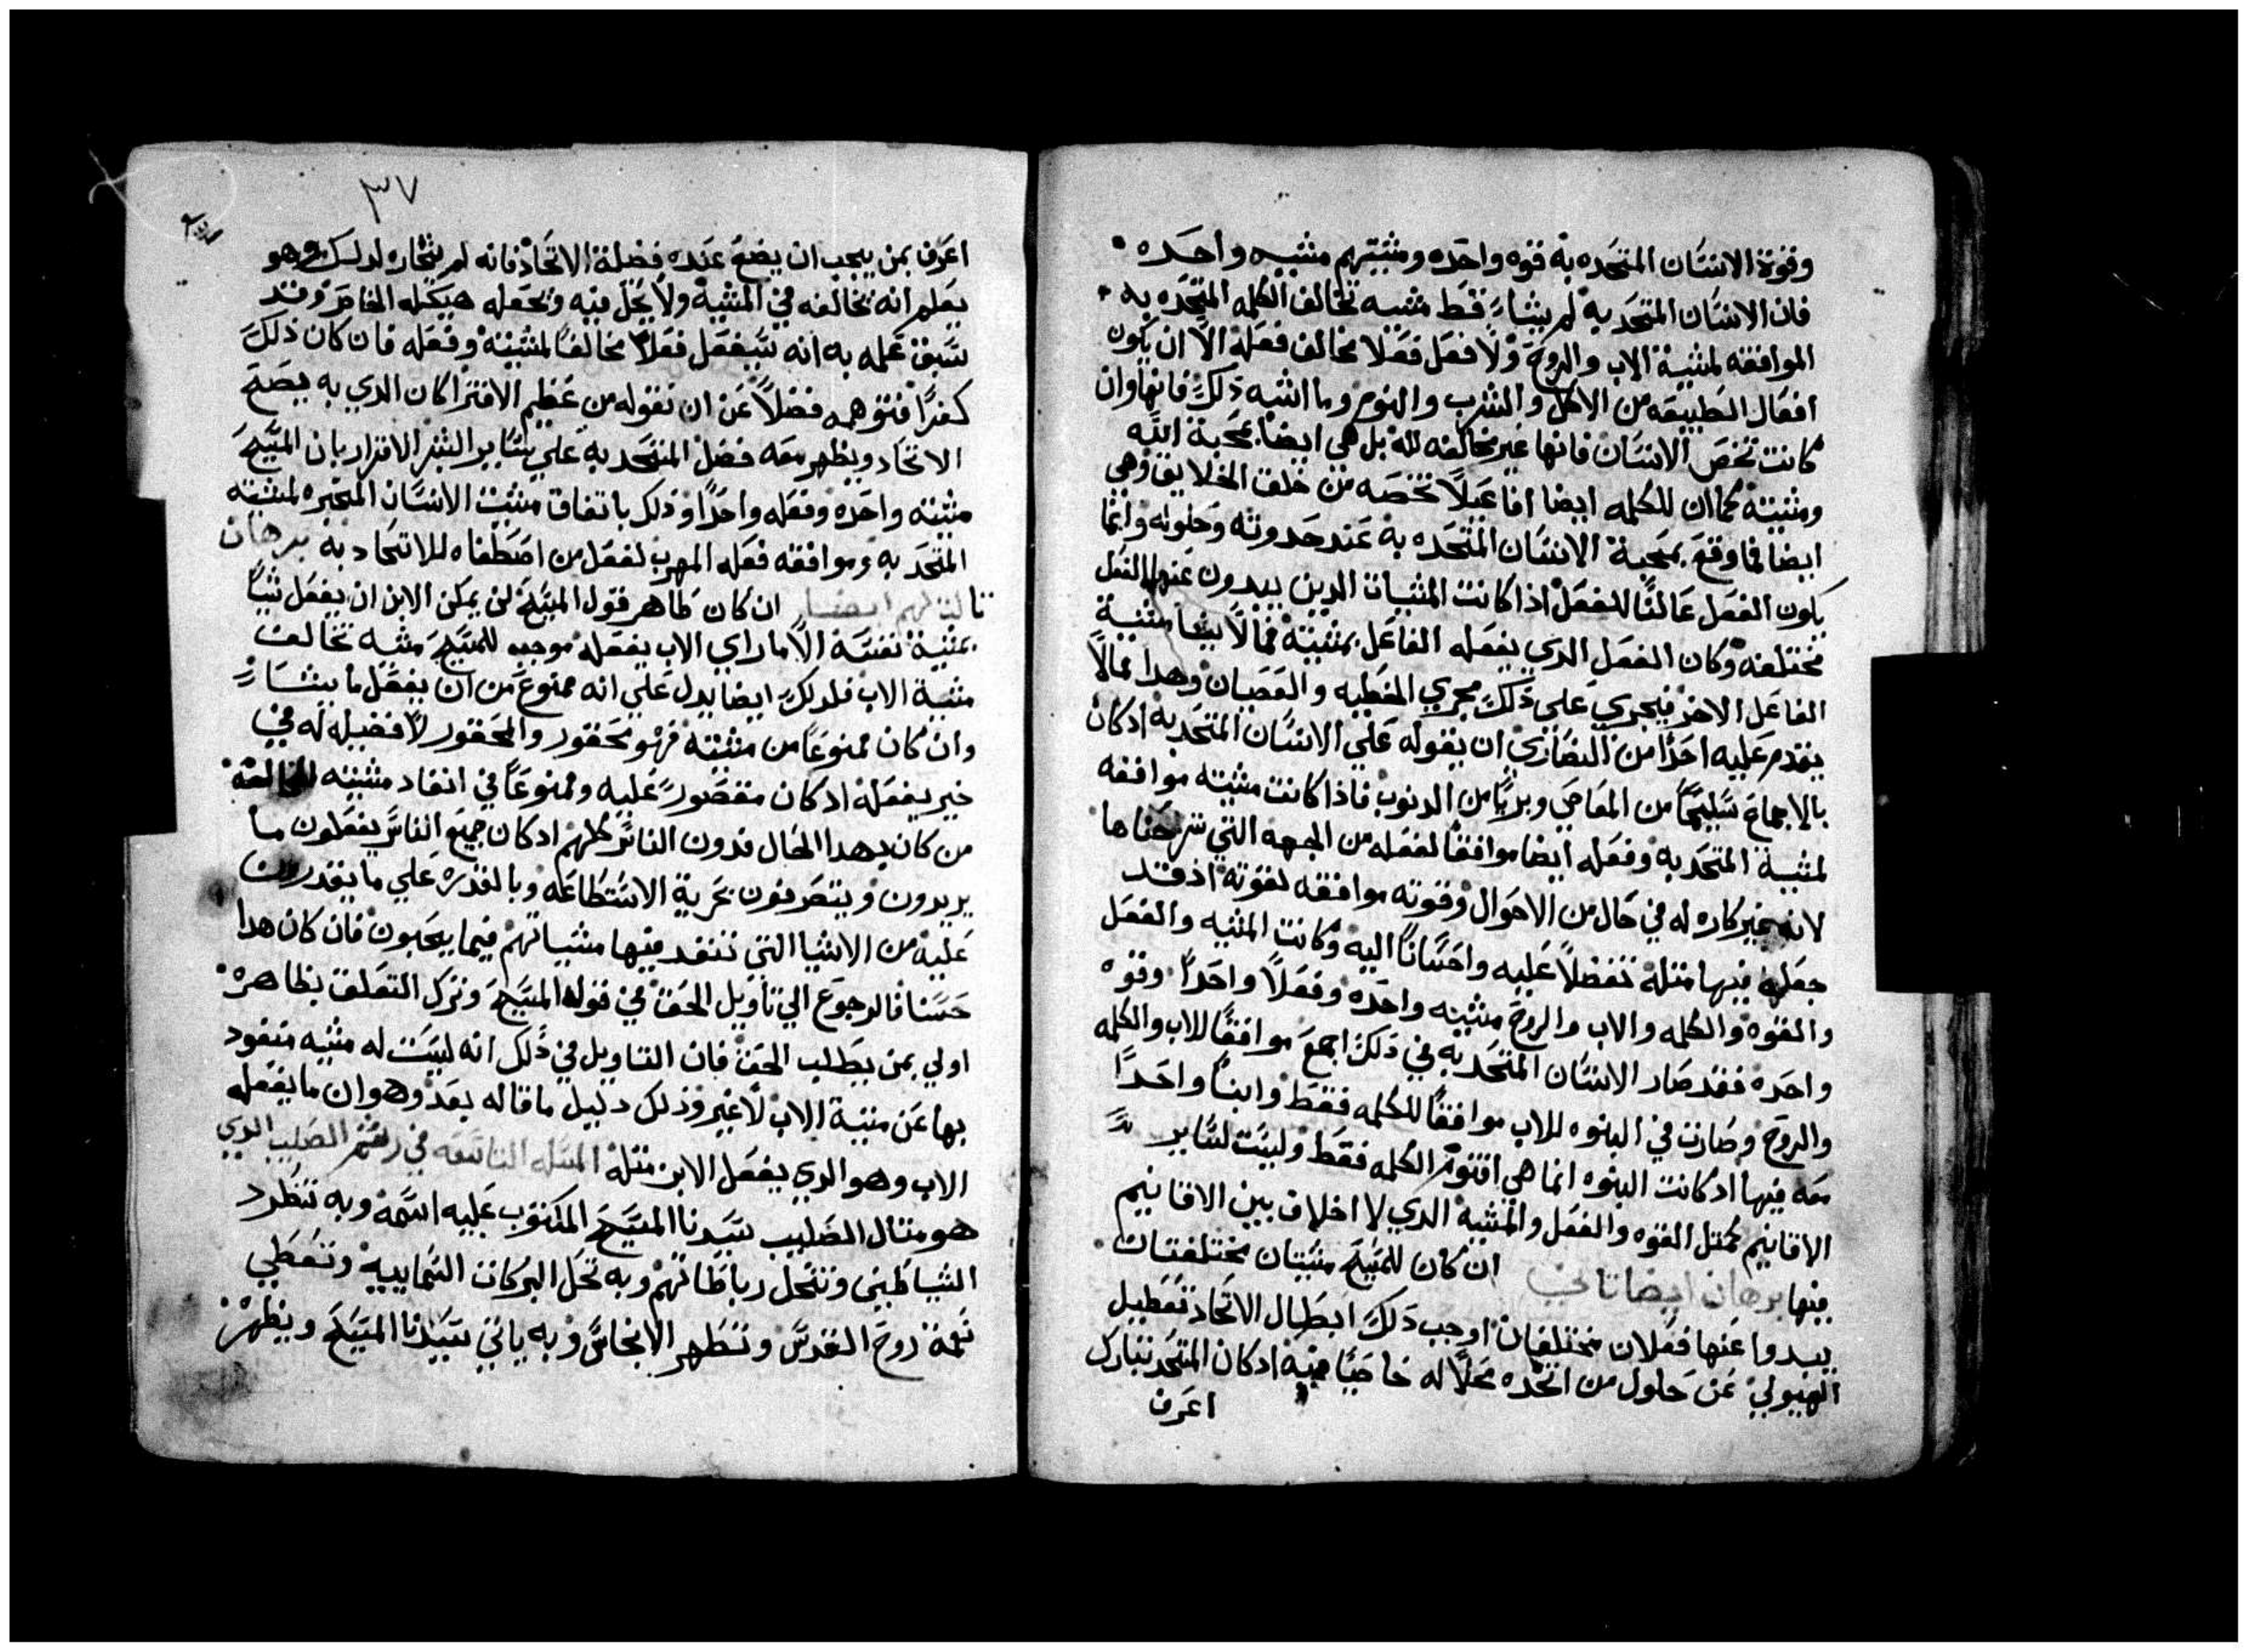 وقوة الانسان المتحده به قوه واحده ومشيتهم مشيه واحده
فان الانسان المتحد به لم يشاء قط مشيه تخالف الكلمه المتحده به
الموافقه لمشية الاب والروح ولا فعل فعلا مخالف فعله الا ان يكون
افعال الطبيعه من الاكل والشرب والنوم وما اشبه ذلك فانها وان
كانت تخص الانسان فانها غير مخالفه لله بل هي ايضا بمحبة الله
ومشيته كما ان للكلمه ايضا افاعيلا تخصه من خلقت الخلايق وهي
ايضا فما وقع بمحبة الانسان المتحده به عند حدوثه وحلوله وانما
يكون الفعل عالفا للفعل اذا كانت المشيات الدين يبدون عنها الفعل
مختلفه وكان الفعل الدي يفعله الفاعل بمشيته مما لا يشا مشية
الفاعل الاخر فيجري على ذلك مجري الخطيه والعصيان وهدا مما لا
يقدم عليه احدا من النصاري ان يقوله على الانسان المتحد به ادكان
بالاجماع سليما من المعاصي وبريا من الدنوب فاذا كانت مشيته موافقه
لمشية المتحد به وفعله ايضا موافقا لفعله من الجهه التي شرحناها
لانه غير كاره له في حال من الاحوال وقوته موافقه لقوته اذ قد
جعله فيها مثله تفضلا عليه واحسانا اليه وكانت المشيه والفعل
والقوه والكلمه والاب والروح مشيه واحده وفعلا واحدا وقوه
واحده فقد صار الانسان المتحد به في ذلك اجمع موافقا للاب والكلمه
والروح وصارت في البنوه للاب موافقا للكلمه فقط وابنا واحدا
معه فيها اد كانت البنوه انما هي اقنوم الكلمه فقط وليست لساير
الاقانيم كمثل القوه والفعل والمشيه الدي لا اخلاف بين الاقانيم
فيها برهان ايضا تاني ان كان للمسيح مشيتان مختلفتان
يبدوا عنها فعلان مختلفان اوجب ذلك ابطال الاتحاد تعطيل
الهيولي عن حلول من اتخده محلا له خاصيا فيه ادكان المتحد تبارك
اعرف
٣٧
اعرف بمن يجب ان يضع عنده فضلة الاتحاد فانه لم يختاره لدلك وهو
يعلم انه يخالفه في المشيه ولا يحل فيه ويجعله هيكله الخاص وقد
سبق علمه به انه سيفعل فعلا مخالفا لمشيته وفعله فان كان ذلك
كفرا فتوهمه فضلا عن ان نقوله من عظيم الافترا كان الدي به يصح
الاتحاد ويظهر معه فضل المتحد به على ساير البشر الاقرار بان المسيح
مشيته واحده وفعله واحدا وذلك باتفاق مشيت الانسان المتخيره لمشيته
المتحد به وموافقه فعله لفعل من اصطفاه للاتحاد به برهان
تالت لهم ايضا ان كان ظاهر قول المسيح لن يمكن الابن ان يفعل شيا
بمشية نفسه الا ما راي الاب يفعله موجب للمسيح مشيه تخالف
مشية الاب فلدلك ايضا يدل على انه ممنوع من ان يفعل ما يشاء
وان كان ممنوعا من مشيته فهو محقور والمحقور لا فضيله له في
خير يفعله ادكان مقصور عليه وممنوعا في انفاد مشيته المخالفه
من كان بهدا الحال فدون الناس كلهم ادكان جميع الناس يفعلون ما
يريدون ويتصرفون بحرية الاستطاعه وبالقدره على ما يقدرون
عليه من الاشيا التي تنفد فيها مشياتهم فيما يحبون فان كان هدا
حسنا فالرجوع الى تأويل الحق في قوله المسيح وترك التعلق بظاهره
اولي بمن يطلب الحق فان التاويل في ذلك انه ليست له مشيه منفود
بها عن مشية الاب لا غير وذلك دليل ما قاله بعد وهو ان ما يفعله
الاب وهو الدي يفعل الابن مثله المسله التاسعه في رشم الصليب الدي
هو مثال الصليب سيدنا المسيح المكتوب عليه اسمه وبه تنطرد
الشياطين وتنحل رباطاتهم وبه تحل البركات السماييه وتعطي
نعمة روح القدس وتطهر الانجاس وبه ياتي سيدنا المسيح ويظهر